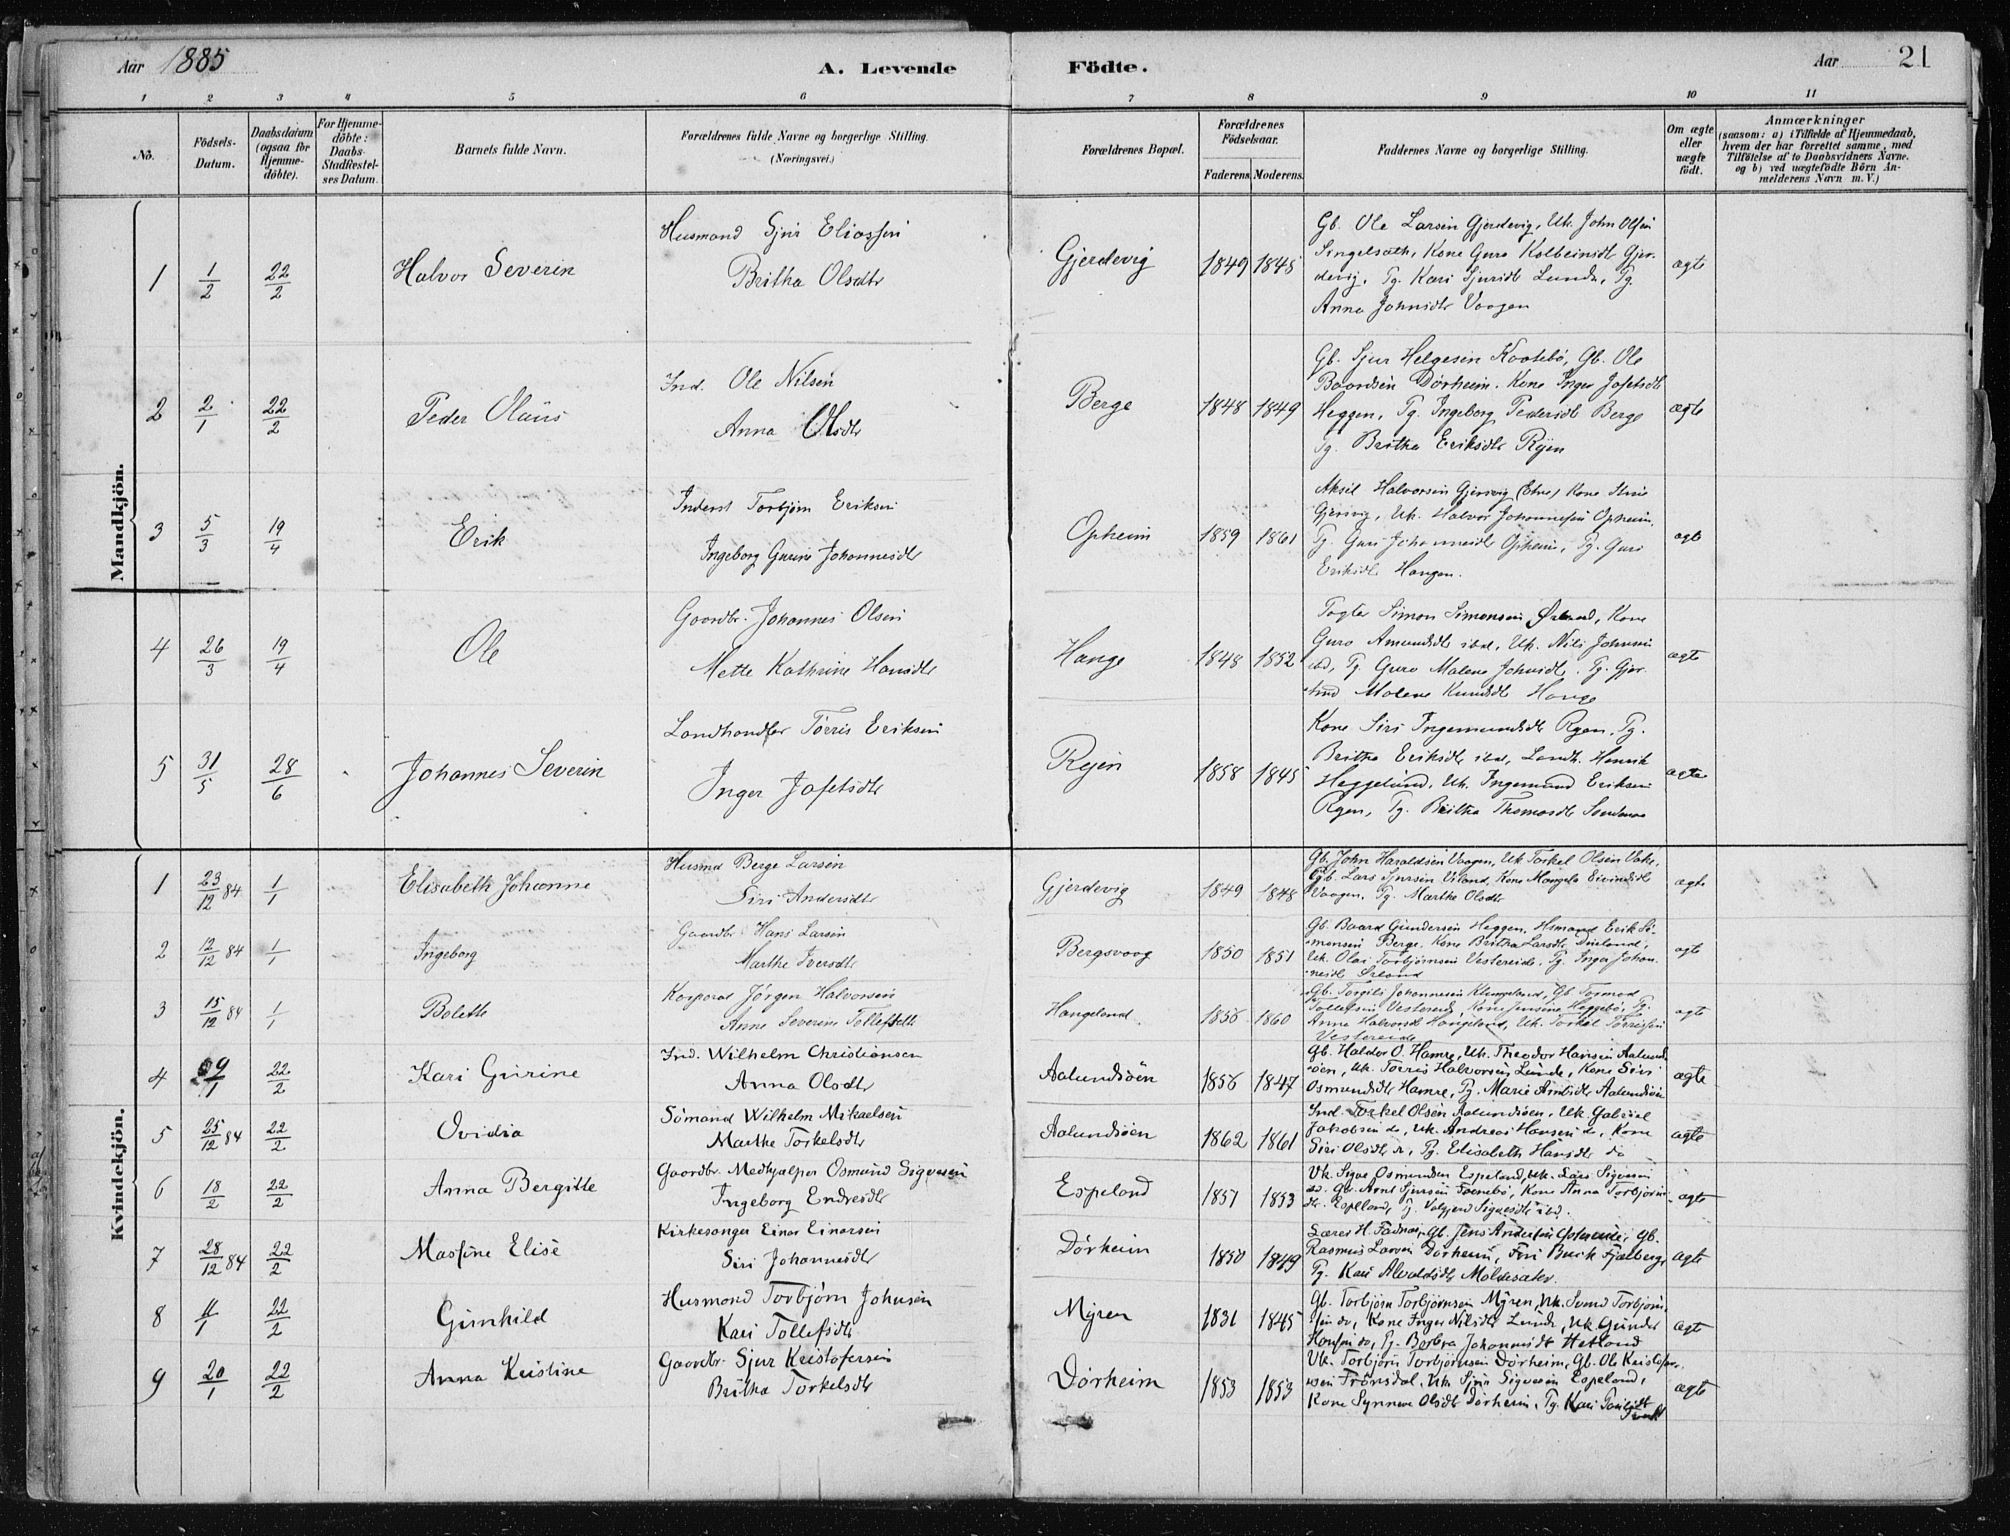 Aar 1885 A. Levende Födte. Aar 21
1 2 3 4 5 6 7 8 9 10 11
No.
Födsels-Datum.
Daabsdatum (ogsaa for Hjemme-döbte).
For Hjemme-döbte: Daabs-Stadfæstel-ses Datum.
Barnets fulde Navn.
Forældrenes fulde Navne og borgerlige Stilling.
(Næringsvei.)
Forældrenes Bopæl.
Forældrenes Födselsaar.
Faderens Moderens
Faddernes Navne og borgerlige Stilling.
Om ægte eller uægte födt.
Anmærkninger
(saasom: a) i Tilfælde af Hjemmedaab,
hvem der har forrettet samme, med
Tilföielse af to Daabsvidners Navne.
og b) ved uægtefödte Börn An-
melderens Navn m. V.)
Mandkjön.
1 1/2 22/2 Halvor Severin
Husmand Sjur Eliassen
Britha Olsdtr
Gjerdevig 1849 1845
Gb. Ole Larsen Gjerdevig, Uk. John Olsen
Kone Guro Kolbeinsdtr Gjer-
devig, Pg. Kari Sjursdtr Lunde, Pg.
Anna Johnsdtr Vaagen
ægte
2 2/1 22/2 Peder Olaus
Ind. Ole Nilsen
Anna Olsdtr
Berge 1848 1849
Gb. Sjur Helgesen Gb. Ole
Baardsen Dørheim. Kone Inger Josefsdtr
Heggen, Pg. Ingeborg Pedersdtr Berge
Pg. Britha Eriksdtr Ryen
ægte
3 5/3 19/4 Erik
Inderst Torbjørn Eriksen
Ingeborg Gurine Johannesdtr
Opheim 1859 1861
Aksel Halvorsen Gjersvig (Etne) Kone
Gjersvig, Uk. Halvor Johannesen Opheim,
Pg. Guri Johannesdtr Opheim, Pg. Guri
Eriksdtr Haugen.
ægte
4 26/3 19/4 Ole
Gaardbr. Johannes Olsen
Mette Kathrine Hansdtr
Hauge 1848 1852
Simon Simonsen Kone
Guro Amundsdtr ibd, Uk. Nils Johnsen
ibd, Pg Guro Malene Johnsdtr. Pg. Gjer-
trud Malene Knudsdtr Hauge
ægte
5 31/5 28/6 Johannes Severin
Landhandler Tørris Eriksen
Inger Josefsdtr
Ryen 1858 1845
Kone Siri Ingemundsdtr Ryen. Pg.
Britha Eriksdtr ibd, Landh. Henrik
Heggelund, Uk. Ingemund Eriksen
Ryen, Pg. Britha Thomasdtr
ægte
Kvindekjön.
1 23/12 84 1/1 Elisabeth Johanne
Husmd Berge Larsen
Siri Andersdtr
Gjerdevig 1849 1848
Gb. John Haraldsen Vaagen, Uk Torkel Olsen
Gb. Lars Sjursen Viland, Kone Eivindsdtr
Vaagen, Pg. Martha Olsdtr
ægte
2 12/12 84 1/1 Ingeborg
Gaardbr Hans Larsen
Marthe Iversdtr
Bergsvaag 1850 1851
Gb. Baard Gundersen Heggen, Hsmand Erik Si-
monsen Berge, Kone Britha Larsdtr
Uk. Olai Torbjørnsen Vestereide, Pg. Inger Johan-
nesdtr
ægte
3 15/12 84 1/1 Bolette
Korporal Jørgen Halvorsen
Anne Severine Tollefsdtr
Haugeland. 1856 1860
Gb. Torgils Johannesen Gb Tormod
Tollefsen Vestereid, Kone Pg.
Anna Halvorsd Haugeland, Uk. Torkel Tørrissen
Vestereide
ægte
4 9/1 22/2 Kari Gurine
Ind. Wilhelm Christiansen
Anna Olsdtr
Aalundsöen 1856 1847
Gb. Haldor O. Hamre, Uk. Theodor Hansen Aalund-
söen, Uk. Tørris Halvorsen Lunde, Kone Siri
Osmundsdtr Hamre, Pg. Marie Aalundsöen
ægte
5 25/12 84 22/2 Ovidia
Sömand Wilhelm Mikaelsen
Marthe Torkelsdtr
Aalundsöen 1862 1861
Ind. Torkel Olsen Aalundsöen, Uk. Gabriel
Jakobsen do, Uk. Andreas Hansen do, Kone
Siri Olsdtr Pg. Elisabeth Hansdtr do
ægte
6 18/2 22/2 Anna Bergitte
Gaardbr. Medhjælper Osmund Sigvesen
Ingeborg Endresdtr
Espeland 1851 1853
Uk. Sigve Osmundsen Espeland, Uk. Lars Sigvesen
Gb. Arnt Sjursen Kone Anna Torbjørns-
dtr. Espeland, Pg. Sigvesdtr ibd.
ægte
7 28/12 84 22/2 Massine Elise
Kirkesanger Einar Einarsen
Siri Johannesdtr
Dørheim 1850 1849
Lærer H. Gb. Jens Andersen Gb.
Rasmus Larsen Dørheim, Buck Fjælberg,
Pg. Kari
ægte
8 11/1 22/2 Gunhild
Husmand Torbjørn Johnsen
Kari Tollefsdtr
Myren 1831 1845
Gb. Torbjørn Torbjørnsen Myren, Uk. Svend Torbjørn-
sen do, Kone Inger Nilsdtr Lunde, Uk. Gunder
Hansen do, Pg. Barbra Johannesdtr Hetland
ægte
9 20/1 22/2 Anna Kristine
Gaardbr. Sjur Kristofersen
Britha Torkelsdtr
Dørheim 1853 1853
Uk. Torbjørn Torbjørnsen Dørheim, Gb. Ole Kristofer-
sen Frönsdal, Uk Sjur Sigvesen Espeland,
Kone Synneve Olsdtr Dørheim, Pg. Kari
ægte